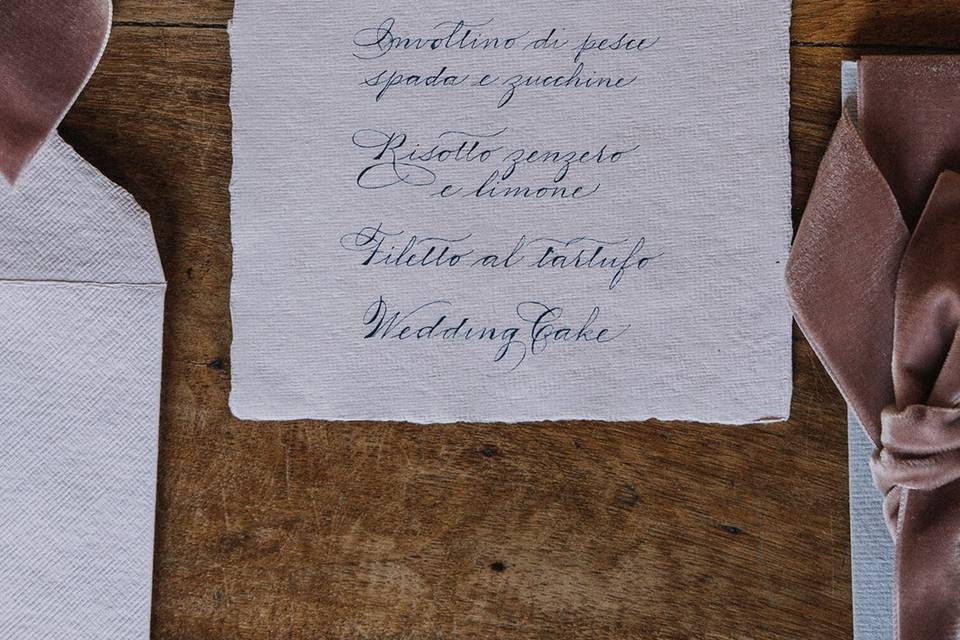 Involtino di pesce
spada e zucchine
Risotto zenzero
e limone
Filetto al tartufo
Wedding Cake